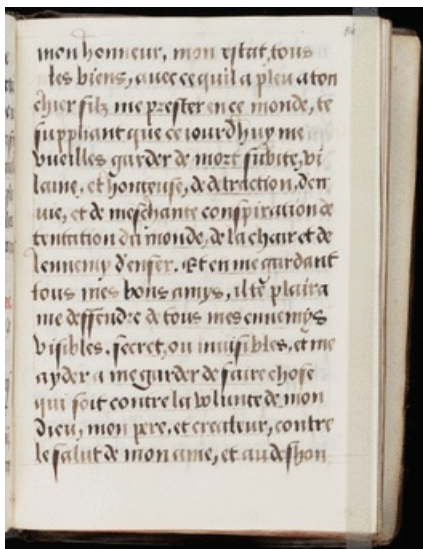 mon honneur, mon estat, tous
les biens, avec ce qu'il a pleu a ton
chier filz me prester en ce monde, te
suppliant que ce iourdhuy me
vueilles garder de mort subite, vi
laine, et honteuse, de detraction, den
vie, et de meschante conspiration de
tentation du monde, de la chair et de
lennemy d'enfer. Et en me gardant
tous mes bons amys, il te plaira
me deffendre de tous mes ennemys
visibles, secret, ou invisibles, et me
ayder a me garder de faire chose
qui soit contre la volunte de mon
dieu, mon pere, et createur, contre
le salut de mon ame, et au deshon